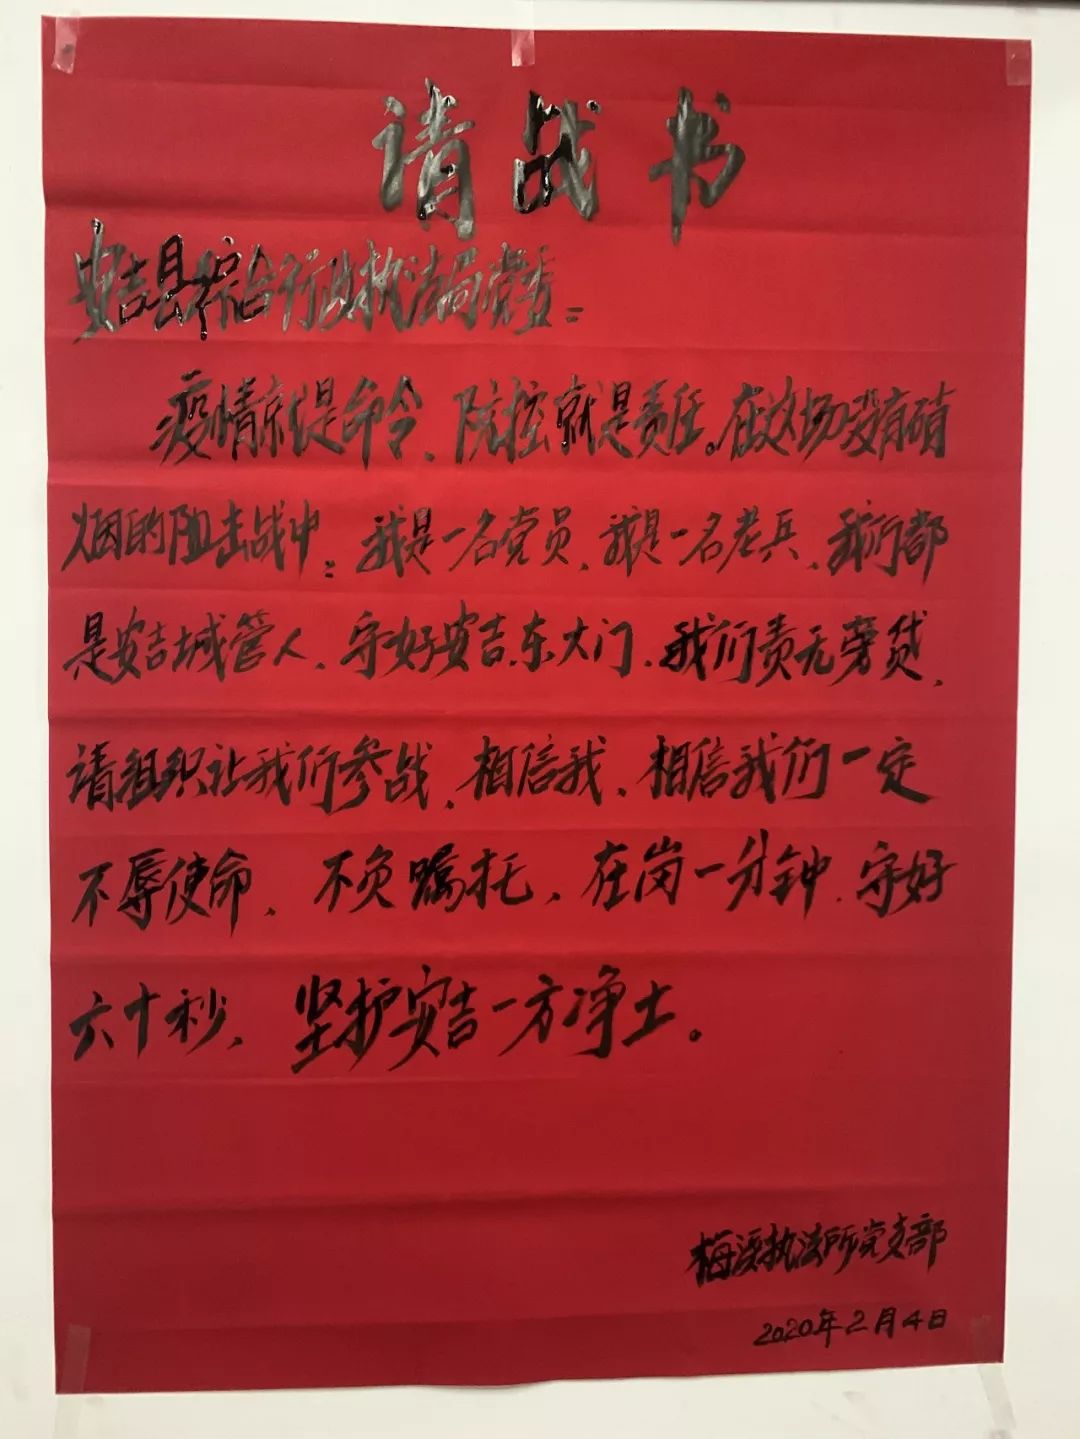 请战书
安吉县综合行政执法局党委：
疫情就是命令、防控就是责任。在这场没有硝
烟的阻击战中：我是一名党员、我是一名老兵、我们都
是安吉城管人、守好安吉东大门、我们责无旁贷、
请组织让我们参战、相信我、相信我们一定
不辱使命、不负嘱托、在岗一分钟、守好
六十秒、坚护安吉一方净土。
梅溪执法所党支部
2020年2月4日